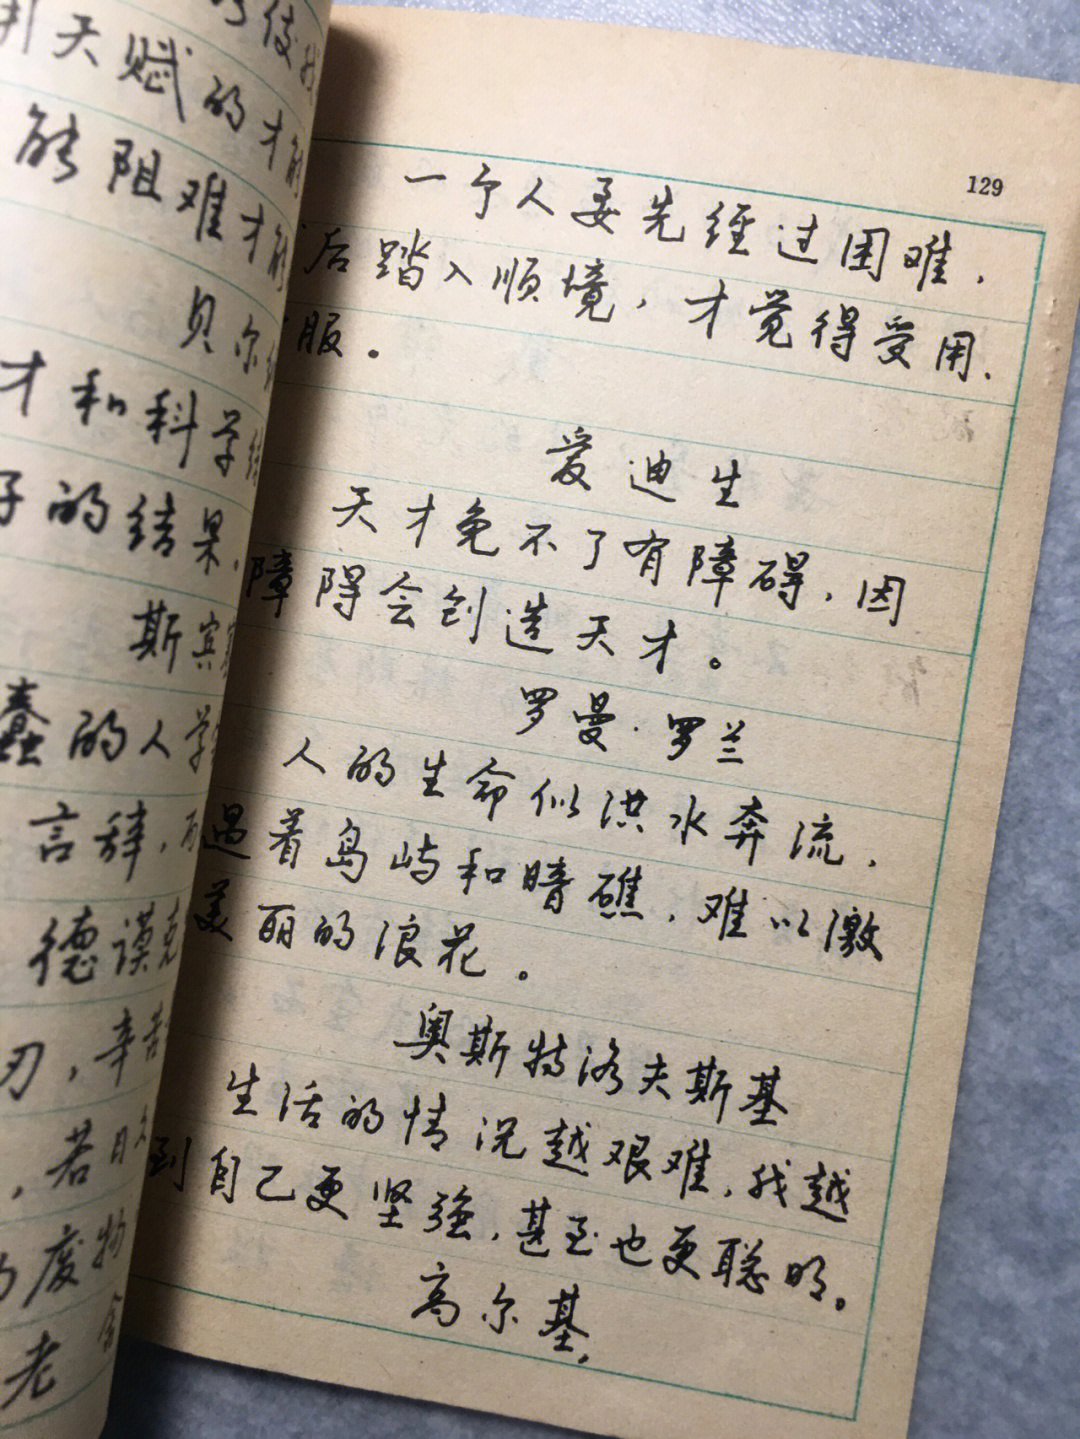 天赋的才
能阻难才
贝尔
才和科学
的结果。
斯宾
蠢的人学
言辞，
德谟克
刃，辛苦
，若
废物
老
129
一个人要先经过困难，
后踏入顺境，才觉得受用、
服。
爱迪生
天才免不了有障碍，因
障碍会创造天才。
罗曼·罗兰
人的生命似洪水奔流，
遇着岛屿和暗礁，难以激
美丽的浪花。
奥斯特洛夫斯基
生活的情况越艰难，我越
到自己更坚强，甚至也更聪明。
高尔基。